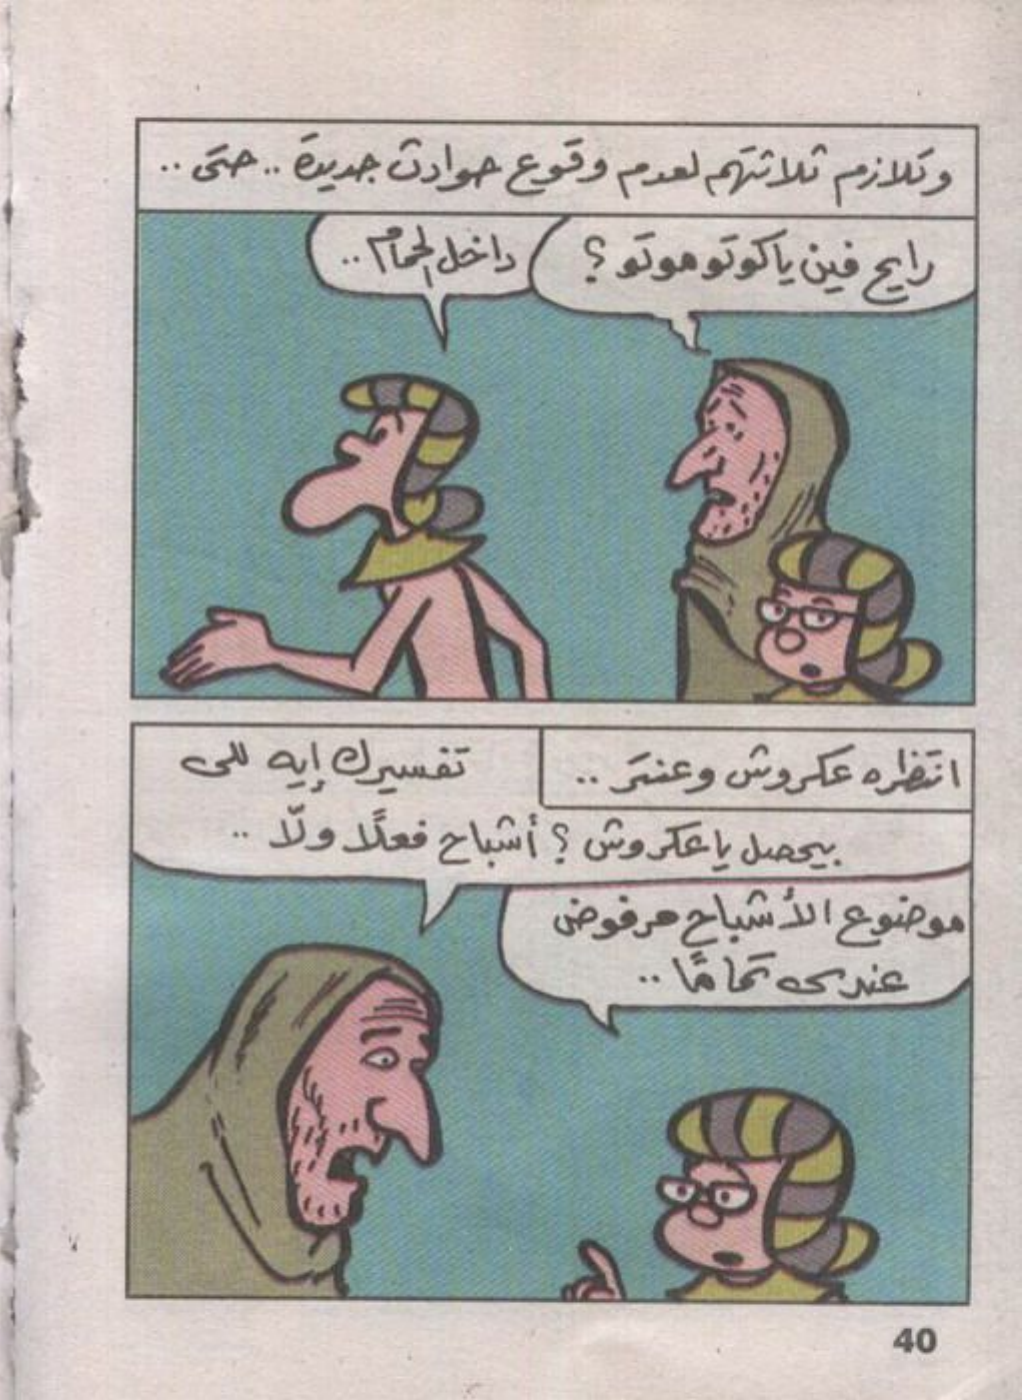 وتلازم ثلاثتهم لعدم وقوع حوادث جديدة .. حتى ..
رايح فين يا كوتوموتو ؟
داخل الحمام ..
انتظره عكروش وعنتر ..
تفسيرك إيه للى
بيحصل يا عكروش ؟ أشباح فعلًا ولّا ..
موضوع الأشباح مرفوض
عندى تمامًا ..
40